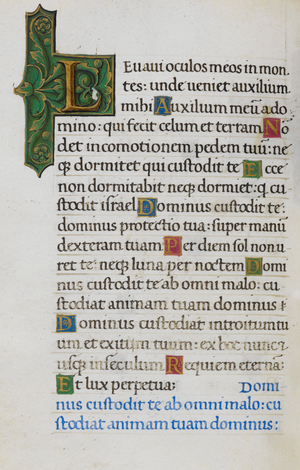 Levavi oculos meos in mon
tes: unde veniet auxilium
mihi Auxilium meū a do
mino: qui fecit celum et terram No
det in comotionem pedem tuū: ne
q̢ dormitet qui custodit te Ecce
non dormitabit neq̢ dormiet: q. cu
stodit israel Dominus custodit te:
dominus protectio tua: super manū
dexteram tuam Per diem sol non u
ret te: neq̢ luna per noctem Domi
nus custodit te ab omni malo: cu
stodiat animam tuam dominus:
Dominus custodiat introitum tu
um et exitum tuum: ex hoc nunc
usq̢ in seculum Requiem eternā:
Et lux perpetua: Domi
nus custodit te ab omni malo: cu
stodiat animam tuam dominus: